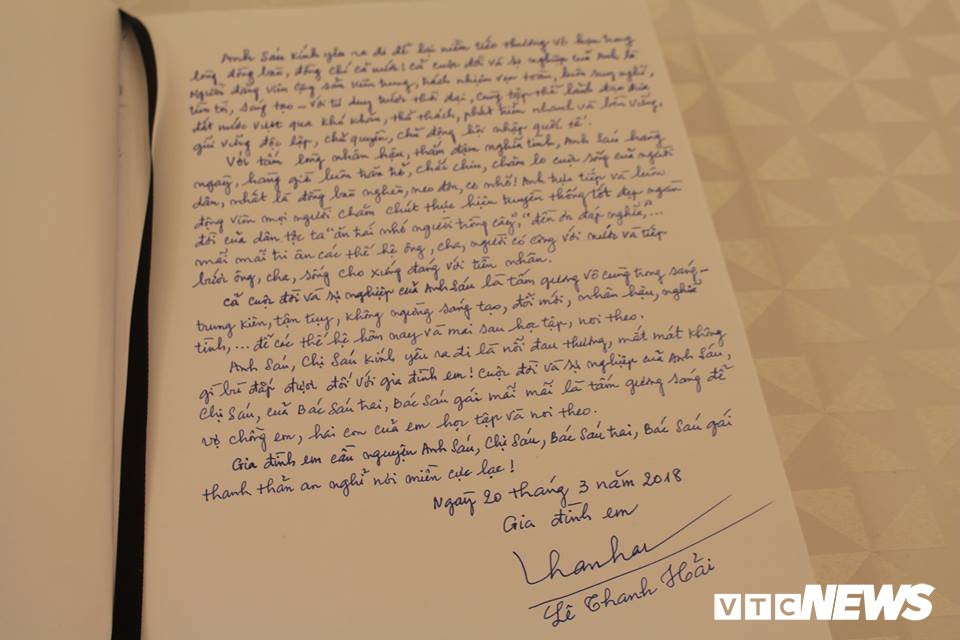 Anh Sáu kính yêu ra đi để lại niềm tiếc thương vô hạn trong
lòng đồng bào, đồng chí cả nước! Cả cuộc đời và sự nghiệp của Anh là
Người đảng viên Cộng sản kiên trung, trách nhiệm vẹn toàn, luôn suy nghĩ,
tìm tòi, sáng tạo - với tư duy vượt thời đại, cùng tập thể lãnh đạo đưa
đất nước vượt qua khó khăn, thử thách, phát triển nhanh và bền vững,
giữ vững độc lập, chủ quyền, chủ động hội nhập quốc tế.
Với tấm lòng nhân hậu, thấm đậm nghĩa tình, Anh Sáu hàng
ngày, hàng giờ luôn trăn trở, chắt chiu, chăm lo cuộc sống của người
dân, nhất là đồng bào nghèo, neo đơn, cơ nhỡ! Anh trực tiếp và luôn
động viên mọi người chăm chút thực hiện truyền thống tốt đẹp ngàn
đời của dân tộc ta "ăn trái nhớ người trồng cây", "đền ơn đáp nghĩa",...
mãi mãi tri ân các thế hệ ông, cha, người có công với nước và tiếp
bước ông, cha, sống cho xứng đáng với tiền nhân.
Cả cuộc đời và sự nghiệp của Anh Sáu là tấm gương vô cùng trong sáng -
trung kiên, tận tụy, không ngừng sáng tạo, đổi mới, nhân hậu, nghĩa
tình,... để các thế hệ hôm nay và mai sau học tập, noi theo.
Anh Sáu, Chị Sáu kính yêu ra đi là nỗi đau thương, mất mát không
gì bù đắp được đối với gia đình em! Cuộc đời và sự nghiệp của Anh Sáu,
Chị Sáu, của Bác Sáu trai, Bác Sáu gái mãi mãi là tấm gương sáng để
vợ chồng em, hai con của em học tập và noi theo.
Gia đình em cầu nguyện Anh Sáu, Chị Sáu, Bác Sáu trai, Bác Sáu gái
thanh thản an nghỉ nơi miền cực lạc!
Ngày 20 tháng 3 năm 2018
Gia đình em
Lê Thanh Hải
VTC NEWS